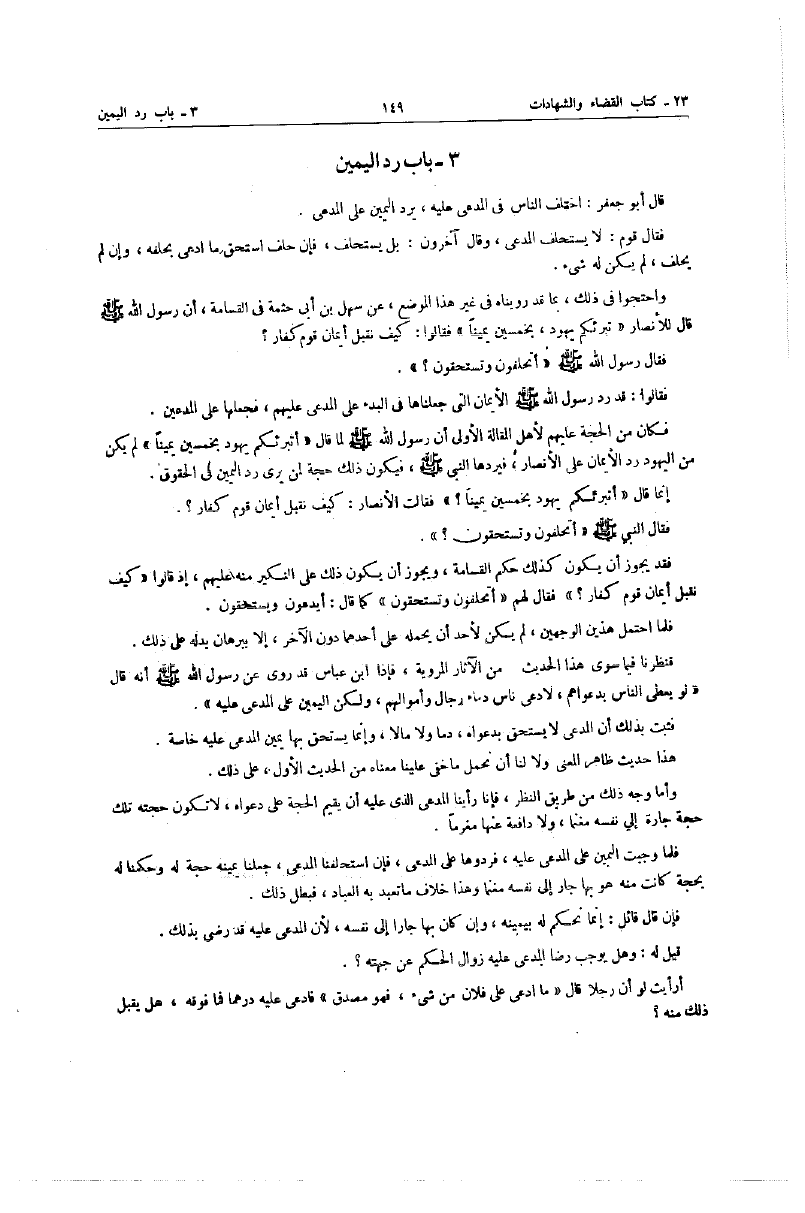 ٢٣ - كتاب القضاء والشهادات ١٤٩ ٣ - باب رد اليمين
٣ - باب رد اليمين
قال أبو جعفر : اختلف الناس فى المدعى عليه ، يرد اليمين على المدعى .
فقال قوم : لا يستحلف المدعى ، وقال آخرون : بل يستحلف ، فإن حلف استحق ما ادعى بحلفه ، وإن لم
يحلف ، لم يكن له شىء .
واحتجوا فى ذلك ، بما قد رويناه فى غير هذا الموضع ، عن سهل بن أبى حثمة فى القسامة ، أن رسول الله ﷺ
قال للأنصار « تبرئكم يهود ، بخمسين يميناً » فقالوا : كيف نقبل أيمان قوم كفار ؟
فقال رسول الله ﷺ « أتحلفون وتستحقون ؟ » .
فقالوا : قد رد رسول الله ﷺ الأيمان التى جعلناها فى البدء على المدعى عليهم ، فجعلها على المدعين .
فكان من الحجة عليهم لأهل المقالة الأولى أن رسول الله ﷺ لما قال « أتبرئكم يهود بخمسين يميناً » لم يكن
من اليهود رد الأيمان على الأنصار ، فيردها النبي ﷺ ، فيكون ذلك حجة لمن يرى رد اليمين فى الحقوق .
إنما قال « أتبرئكم يهود بخمسين يميناً ؟ » فقالت الأنصار : كيف نقبل أيمان قوم كفار ؟ .
فقال النبي ﷺ « أتحلفون وتستحقون ؟ » .
فقد يجوز أن يكون كذلك حكم القسامة ، ويجوز أن يكون ذلك على النكير منه عليهم ، إذ قالوا « كيف
نقبل أيمان قوم كفار ؟ » فقال لهم « أتحلفون وتستحقون » كما قال : أيدعون ويستحقون .
فلما احتمل هذين الوجهين ، لم يكن لأحد أن يحمله على أحدهما دون الآخر ، إلا ببرهان يدله على ذلك .
فنظرنا فيما سوى هذا الحديث من الآثار المروية ، فإذا ابن عباس قد روى عن رسول الله ﷺ أنه قال
« لو يعطى الناس بدعواهم ، لادعى ناس دماء رجال وأموالهم ، ولكن اليمين على المدعى عليه » .
فثبت بذلك أن المدعى لا يستحق بدعواه ، دما ولا مالا ، وإنما يستحق بها يمين المدعى عليه خاصة .
هذا حديث ظاهر المعنى ولا لنا أن نحمل ما خفى علينا معناه من الحديث الأول ، على ذلك .
وأما وجه ذلك من طريق النظر ، فإنا رأينا المدعى الذى عليه أن يقيم الحجة على دعواه ، لا تكون حجته تلك
حجة جارة إلي نفسه مغنما ، ولا دافعة عنها مغرماً .
فلما وجبت اليمين على المدعى عليه ، فردوها على المدعى ، فإن استحلفنا المدعى ، جعلنا يمينه حجة له وحكمنا له
بحجة كانت منه هو بها جار إلى نفسه مغنما وهذا خلاف ما تعبد به العباد ، فبطل ذلك .
فإن قال قائل : إنما نحكم له بيمينه ، وإن كان بها جارا إلى نفسه ، لأن المدعى عليه قد رضي بذلك .
قيل له : وهل يوجب رضا المدعى عليه زوال الحكم عن جهته ؟ .
أرأيت لو أن رجلا قال « ما ادعى على فلان من شىء ، فهو مصدق » فادعى عليه درهما فما فوقه ، هل يقبل
ذلك منه ؟